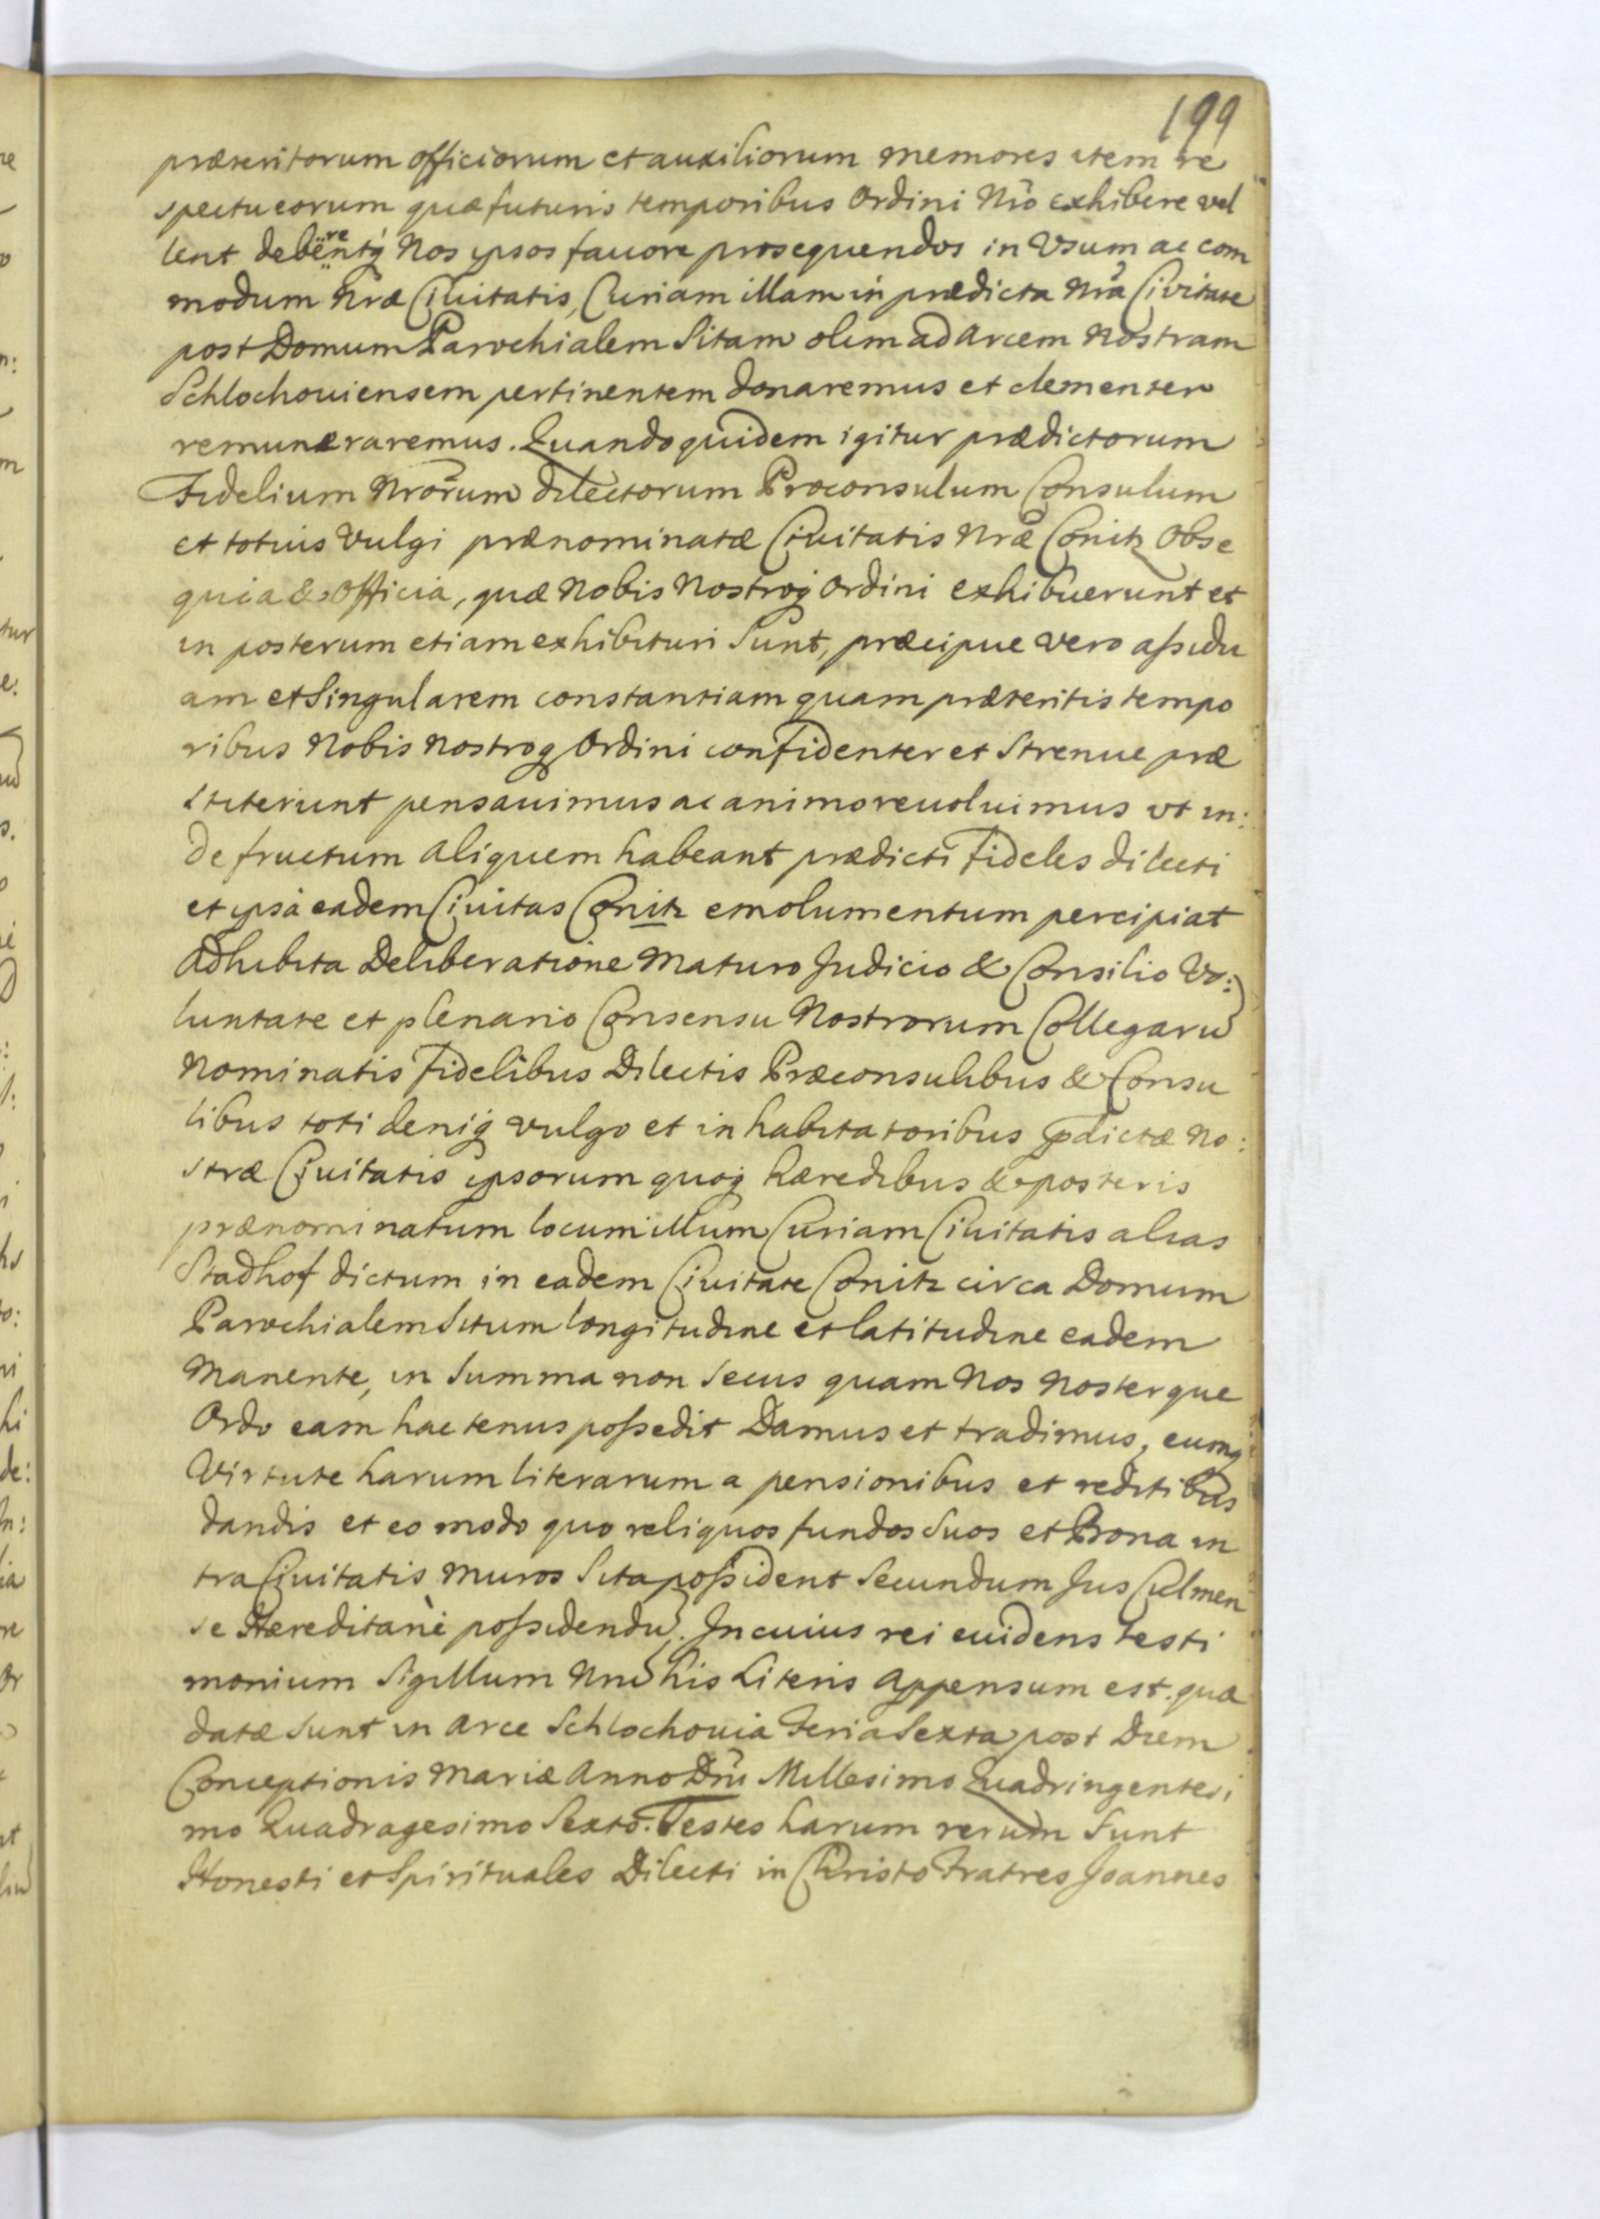 199
præteritorum officiorum et auxiliorum memores item re
spectu eorum quæ futuris temporibus Ordini Nro exhibere vel
lent deberentq Nos ipsos fauore prosequendos in Vsum ac com
modum Nræ Ciuitatis, Curiam illam in prædicta Nra Civitate
post Domum Parochialem Sitam olim ad Arcem Nostram
Schlochouiensem pertinentem donaremus et clementer
remuneraremus. Quandoquidem igitur prædictorum
Fidelium Nrorum dilectorum Proconsulum Consulum
et totius Vulgi prænominatæ Ciuitatis Nræ Conitz Obse
quia & Officia, quæ Nobis Nostroq Ordini exhibuerunt et
in posterum etiam exhibituri Sunt, præcipue vero assidu
am et Singularem constantiam quam præteritis tempo
ribus Nobis Nostroq Ordini confidenter et Strenue præ
stiterunt pensauimus ac animo reuoluimus vt in:
de fructum aliquem habeant prædicti Fideles dilecti
et ipsa eadem Ciuitas Conitz emolumentum percipiat
Adhibita Deliberatione Maturo Judicio & Consilio Vo:
luntate et plenario Consensu Nostrorum Collegaru
Nominatis Fidelibus Dilectis Præconsulibus & Consu
libus toti deniq vulgo et inhabitatoribus pdictæ No:
stræ Ciuitatis ipsorum quoq hæredibus & posteris
prænominatum locum illum Curiam Ciuitatis alias
Stadhof dictum in eadem Ciuitate Conitz circa Domum
Parochialem Situm longitudine et latitudine eadem
Manente, in Summa non Secus quam Nos Nosterque
Ordo eam hactenus possedit Damus et tradimus, eumq
Virtute harum literarum a pensionibus et reditibus
dandis et eo modo quo reliquos fundos Suos et Bona in
tra Ciuitatis Muros Sita possident Secundum Jus Culmen
se Hæreditariè possidendu. In cuius rei euidens testi
monium Sigillum Nru his Literis appensum est. quæ
datæ Sunt in Arce Schlochouia Feria Sexta post Diem
Conceptionis Mariæ Anno Dni Millesimo Quadringentesi
mo Quadragesimo Sexto. Testes harum rerum Sunt
Honesti et Spirituales Dilecti in Christo Fratres Joannes